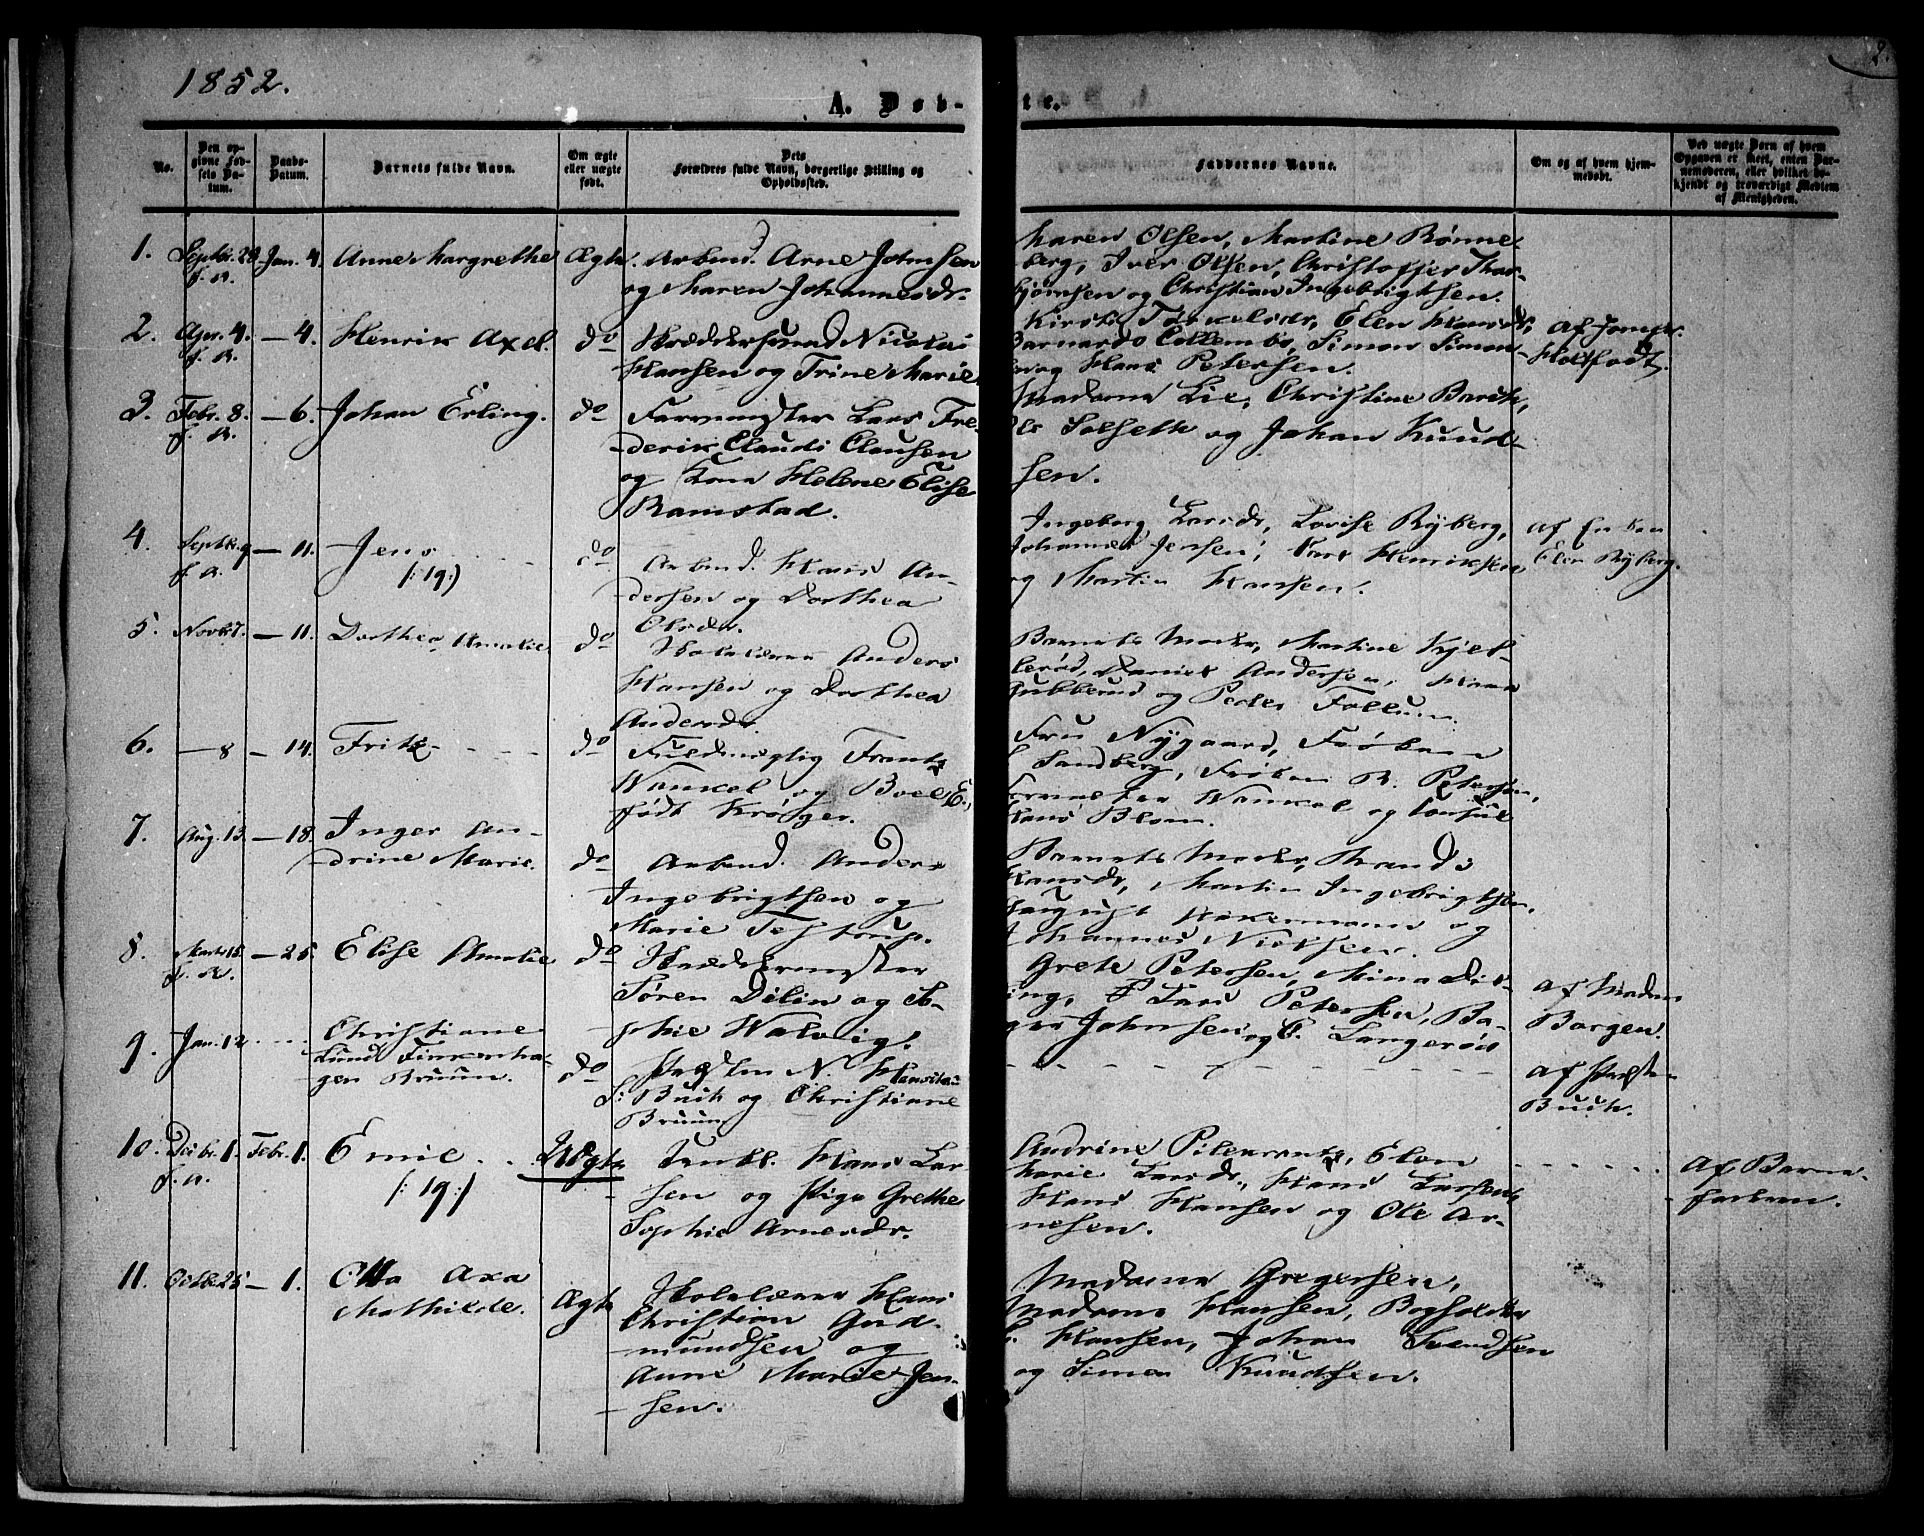 1852.
2.
A. Døb-
te.
No.
Den op-
givne Fød-
sels Da-
tum.
Daabs-
Datum.
Barnets fulde Navn.
Om ægte
eller uægte
født.
Dets
Forældres fulde Navn, borgerlige Stilling og
Opholdssted.
Faddernes Navne.
Om og af hvem hjem-
medøbt.
Ved uægte Børn af hvem
Opgaven er skeet, enten Bar-
nemoderen, eller hvilket be-
kjendt og troværdigt Medlem
af Menigheden.
1. Septbr. 29 Jan. 4. Anne Margrethe Ægte. Arbmd. Arne Johnsen
f. A.
og Maren Johannesdr.
Maren Olsen, Martine Rønne-
berg, Iver Olsen, Christoffer Thor-
bjørnsen og Christian Ingebrigtsen.
2. Apr. 4. — 4. Henrik Axel. do Skræddersvend Nicolai
f. A.
Hansen og Trine Marie
Elen Hansdr,
Simon Simon-
og Hans Petersen.
Af Jomfr.
3. Febr. 8. — 6. Johan Erling. do Farvemester Lars Fre-
f. A.
derik Claudi Clausen
og Kone Helene Elise
Ramstad.
Madame Lie, Christine
Solseth og Johan Knud-
sen.
4. Septbr. 9 — 11. Jens do Arbmd. Hans An-
f. A.
(: 19:)
dersen og Dorthea
Olsdr.
Ingeborg Larsdr, Lovise Ryberg,
Johannes Jensen, Lars Henriksen
og Martin Hansen.
Af Enken
Elen Ryberg.
5. Novbr. 7. — 11. Dorthea Amalie do Anders
Hansen og Dorthea
Andersdr.
Barnets Moder, Martine Kjel-
lerød, Daniel Andersen, Hans
Gubberud og Peder Follum.
6. — 8 — 14. Fritz do Fuldmægtig Frants
Wankel og Boel E.,
født Krøger.
Fru Nygaard, Frøken
Sandberg, Frøken R. Petersen,
Wankel og Consul
Hans Blom.
7. Aug. 13. — 18. Inger An-
drine Marie. do Arbmd. Anders
Ingebrigtsen og
Marie Testrup.
Barnets Moder, Randi
Hansdr, Martin Ingebrigtsen,
August Akermann og
Johannes Nielsen.
8. Marts 15. — 25. Elise Amalie do Skræddermester
f. A.
Søren Dilin og So-
phie Walvig.
Grete Petersen, Mina
Lars Petersen,
Johnsen og C. Langerød
Af Madm
Borgen.
9. Jan. 12 Christiane
Lund Finkenha-
gen Bruun. do Præsten N.
S. Buch og Christiane
Bruun
Af Præsten
Buch.
10. Decbr. 1. Febr. 1. Emil Uægte Hans Lar-
f. A.
(: 19:)
sen og Pige Grethe
Sophie Arnesdr.
Andrine Pilekrantz, Elen
Marie Larsdr., Hans Larsen,
Hans Hansen og Ole Ar-
nesen.
Af Barne-
faderen.
11. Octbr. 25 — 1. Otto Axa
Mathilde. Ægte Hans
Christian Gud-
mundsen og
Anne Marie Jen-
sen.
Madame Gregersen,
Madame Hansen, Bogholder
Hansen, Johan Svendsen
og Simen Knudsen.